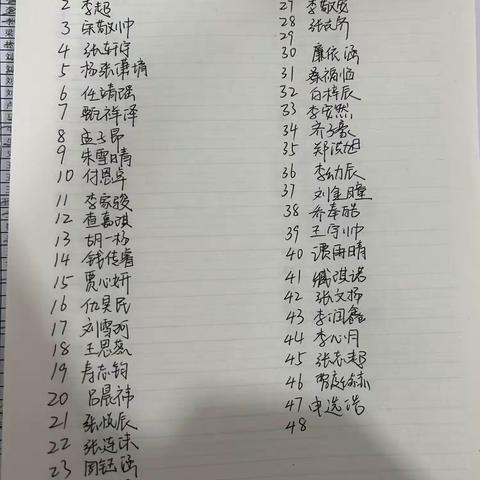 2 李超
3 宋敬帅
4 张轩宁
5 杨张潇靖
6 任靖涵
7 甄祥泽
8 孟子昂
9 朱雪晴
10 付恩卓
11 李家骏
12 查嘉琪
13 胡一杨
14 钱佳睿
15 贾心妍
16 仇昊民
17 刘雪珂
18 王思燕
19 寿志钧
20 吕晨祎
21 张悦辰
22 张连沫
23 周钰涵
27 李敬宽
28
29
30 廉依涵
31 桑福临
32 白梓辰
33 李安然
34 齐子豪
35 郑浩旭
36 李幼辰
37 刘金瞳
38 乔奉皓
39 王守帅
40 雨晴
41 臧淇诺
42 张文扬
43 李润鑫
44 李心月
45 张志超
46
47 申选浩
48